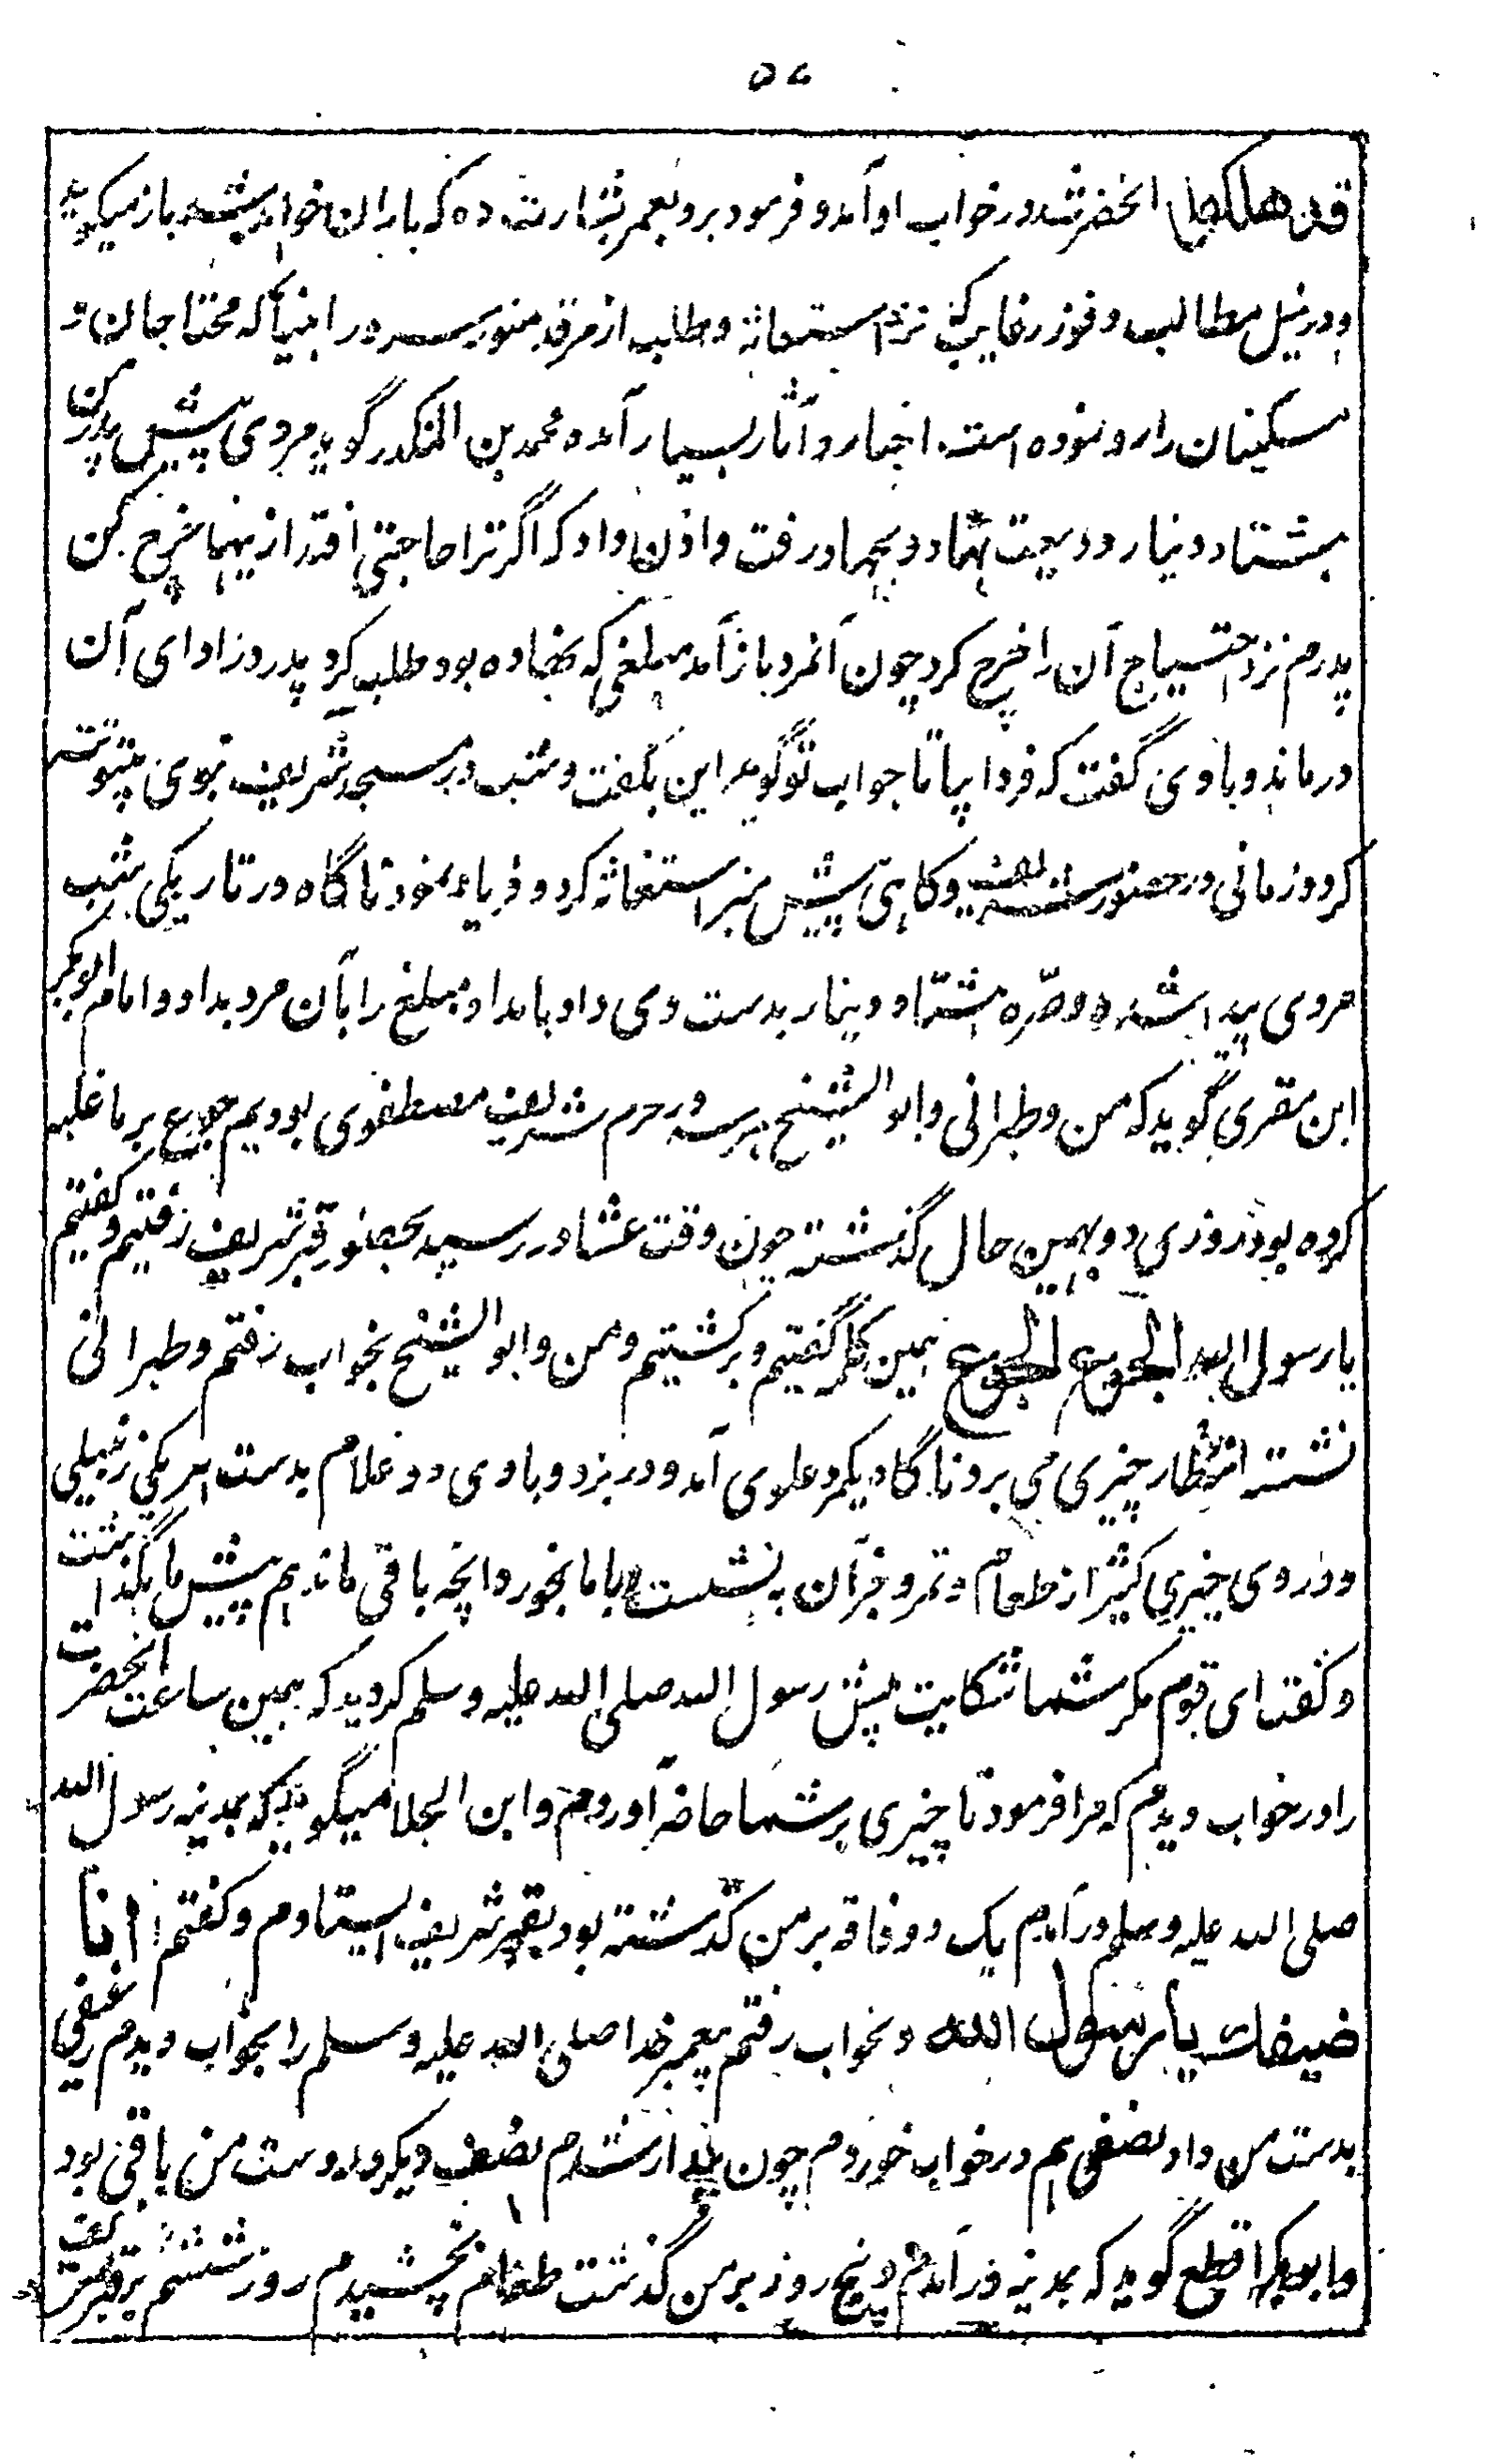 ۵۷
قد هلكوا آنحضرت در خواب او آمد و فرمود برو بعمر بشارت ده که باران خواهد شد باز میگوید
و در نیل مطالب و فوز رغایب که نزد استعانه و طلب از مرقد منور سرور انبیا که محتاجان و
مسکینان را رو نموده است اخبار و آثار بسیار آمده محمد بن المنکدر گوید مردی پیش پدر من
هشتاد دینار ودیعت نهاد و بجهاد رفت و اذن داد که اگر ترا حاجتی افتد ازینها خرج کن
پدرم نزد احتیاج آن را خرج کرد چون آنمرد باز آمد مبلغی که نهاده بود طلب کرد پدر و از ادای آن
درماند و با وی گفت که فردا بیا تا جواب تو گویم این بگفت و شب در مسجد شریف نبوی بیتوتت
کرد و زمانی در حضور شریف و گاهی پیش منبر استغاثه کرد و فریاد نمود ناگاه در تاریکی شب
مردی پیدا شد و صره هشتاد دینار بدست وی داد بامداد مبلغ را بآن مرد بداد و امام ابوبکر
ابن مقری گوید که من و طبرانی و ابو الشیخ هر سه در حرم شریف مصطفوی بودیم جوع بر ما غلبه
کرده بود روزی دو بهمین حال گذشته چون وقت عشا در رسید بحضور قبر شریف رفتیم و گفتیم
یا رسول الله الجوع الجوع همین کلمه گفتیم و برگشتیم و من و ابو الشیخ بخواب رفتم و طبرانی
نشسته انتظار چیزی می برد ناگاه یکمرد علوی آمد و در بزد و با وی دو غلام بدست هر یکی زنبیلی
و در وی چیزی کثیر از طعام و تمر و خبز آن بنشست با ما بخورد و آنچه باقی ماند هم پیش ما بگذاشت
و گفت ای قوم مگر شما شکایت پیش رسول الله صلی الله علیه و سلم کردید که همین ساعت آنحضرت
را در خواب دیدم که مرا فرمود تا چیزی بر شما حاضر آوردم و ابن الجلا میگوید که بمدینه رسول الله
صلی الله علیه و سلم در آمدم یک دو فاقه بر من گذشته بود بقبر شریف ایستادم و گفتم انا
ضيفك يا رسول الله و بخواب رفتم پیغمبر خدا صلی الله علیه و سلم را بخواب دیدم رغیفی
بدست من داد نصفی هم در خواب خوردم چون بیدار شدم نصف دیگر در دست من باقی بود
و ابو بکر اقطع گوید که بمدینه در آمدم و پنج روز بر من گذشت طعام نچشیدم روز ششم بر قبر شریف